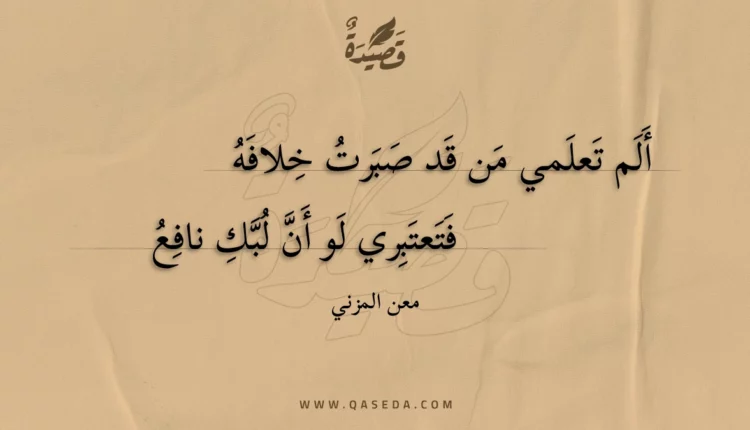 قَصِيدَةٌ
أَلَم تَعلَمي مَن قَد صَبَرتُ خِلافَهُ
فَتَعتَبِري لَو أَنَّ لُبَّكِ نافِعُ
معن المزني
WWW.QASEDA.COM